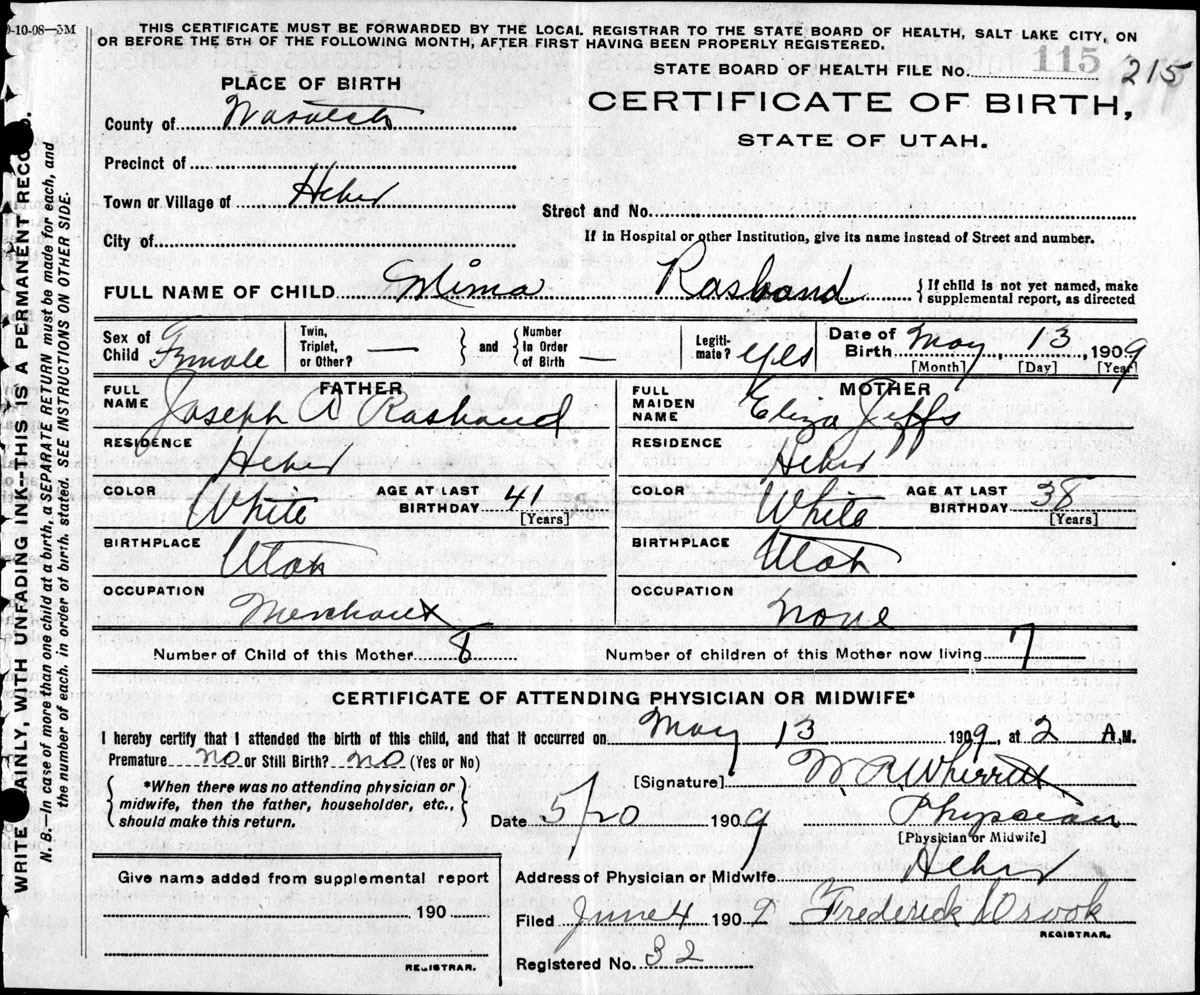 0-10-08—3M
THIS CERTIFICATE MUST BE FORWARDED BY THE LOCAL REGISTRAR TO THE STATE BOARD OF HEALTH, SALT LAKE CITY, ON
OR BEFORE THE 5TH OF THE FOLLOWING MONTH, AFTER FIRST HAVING BEEN PROPERLY REGISTERED.
STATE BOARD OF HEALTH FILE No. 115 215
PLACE OF BIRTH
CERTIFICATE OF BIRTH,
STATE OF UTAH.
County of Wasatch
Precinct of
Town or Village of Heber
Street and No.
City of
If in Hospital or other Institution, give its name instead of Street and number.
FULL NAME OF CHILD Mima Rasband { If child is not yet named, make
supplemental report, as directed
Sex of Child Female
Twin, Triplet, or Other? — } and { Number in Order of Birth —
Legiti-mate? yes
Date of Birth May, 13, 1909
[Month] [Day] [Year]
FATHER
FULL NAME Joseph A Rasband
MOTHER
FULL MAIDEN NAME Eliza Jeffs
RESIDENCE Heber
RESIDENCE Heber
COLOR White AGE AT LAST BIRTHDAY 41 [Years]
COLOR White AGE AT LAST BIRTHDAY 38 [Years]
BIRTHPLACE Utah
BIRTHPLACE Utah
OCCUPATION Merchant
OCCUPATION None
Number of Child of this Mother 8
Number of children of this Mother now living 7
CERTIFICATE OF ATTENDING PHYSICIAN OR MIDWIFE*
I hereby certify that I attended the birth of this child, and that it occurred on May 13 1909, at 2 A.M.
Premature no or Still Birth? no (Yes or No)
[Signature] W R Wherritt
{ *When there was no attending physician or
midwife, then the father, householder, etc.,
should make this return. }
Date 5/20 1909 Physician
[Physician or Midwife]
Address of Physician or Midwife Heber
Give name added from supplemental report
190
REGISTRAR.
Filed June 4 1909 Frederick Crook
REGISTRAR.
Registered No. 32
WRITE AINLY, WITH UNFADING INK--THIS IS A PERMANENT RECO D.
N. B.—In case of more than one child at a birth, a SEPARATE RETURN must be made for each, and
the number of each, in order of birth, stated. SEE INSTRUCTIONS ON OTHER SIDE.